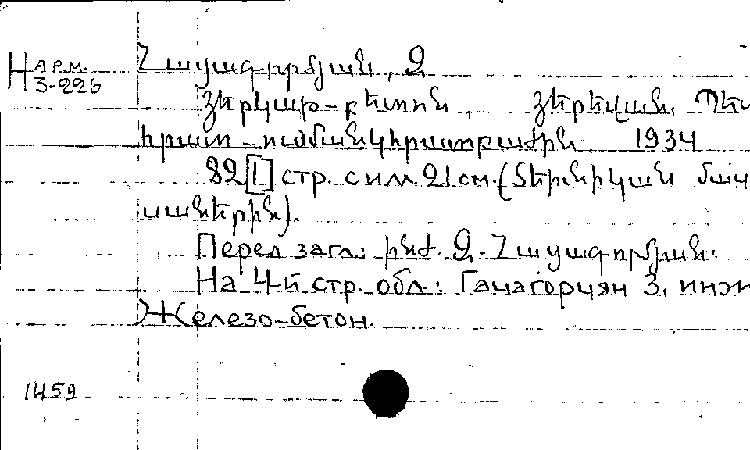 Н АРМ. Հացագործյան, Զ
3-226
Յերկաթ-բետոն, Յերեվան, Պետ
հրատ - ուսմանկհրատբաժին 1934
82 [1] стр. с илл. 21 см. (Տեխնիկական մաս
սաներին).
Перед загл.: ինժ. Զ. Հացագործյան.
На 4й стр. обл.: Гацагорцян З. инж
Железо-бетон.
1459